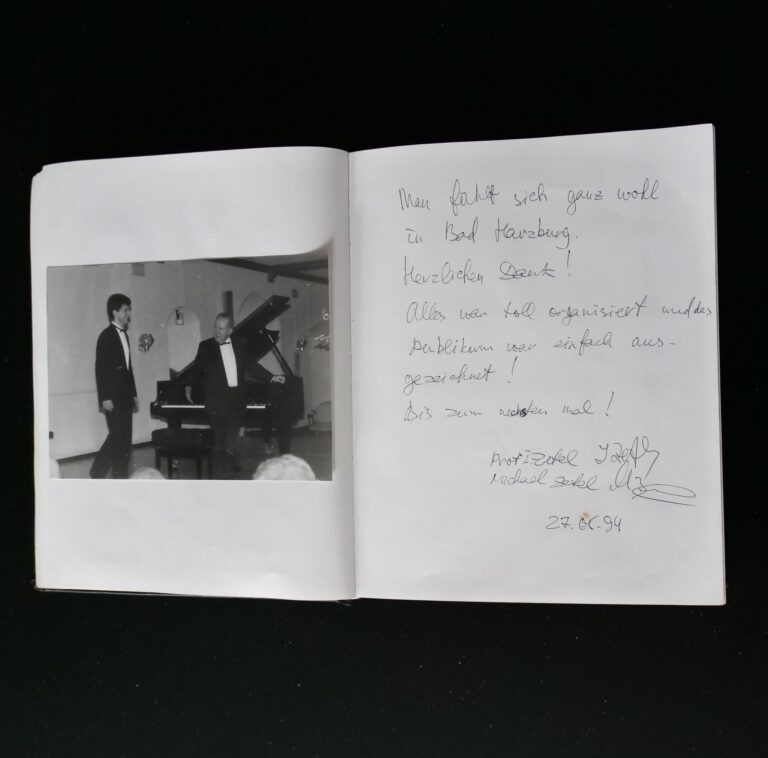 Man fühlt sich ganz wohl
in Bad Harzburg.
Herzlichen Dank!
Alles war toll organisiert und das
Publikum war einfach aus-
gezeichnet!
Bis zum nechsten mal!
Prof I. Zetel
Michael Zetel
27.06.94